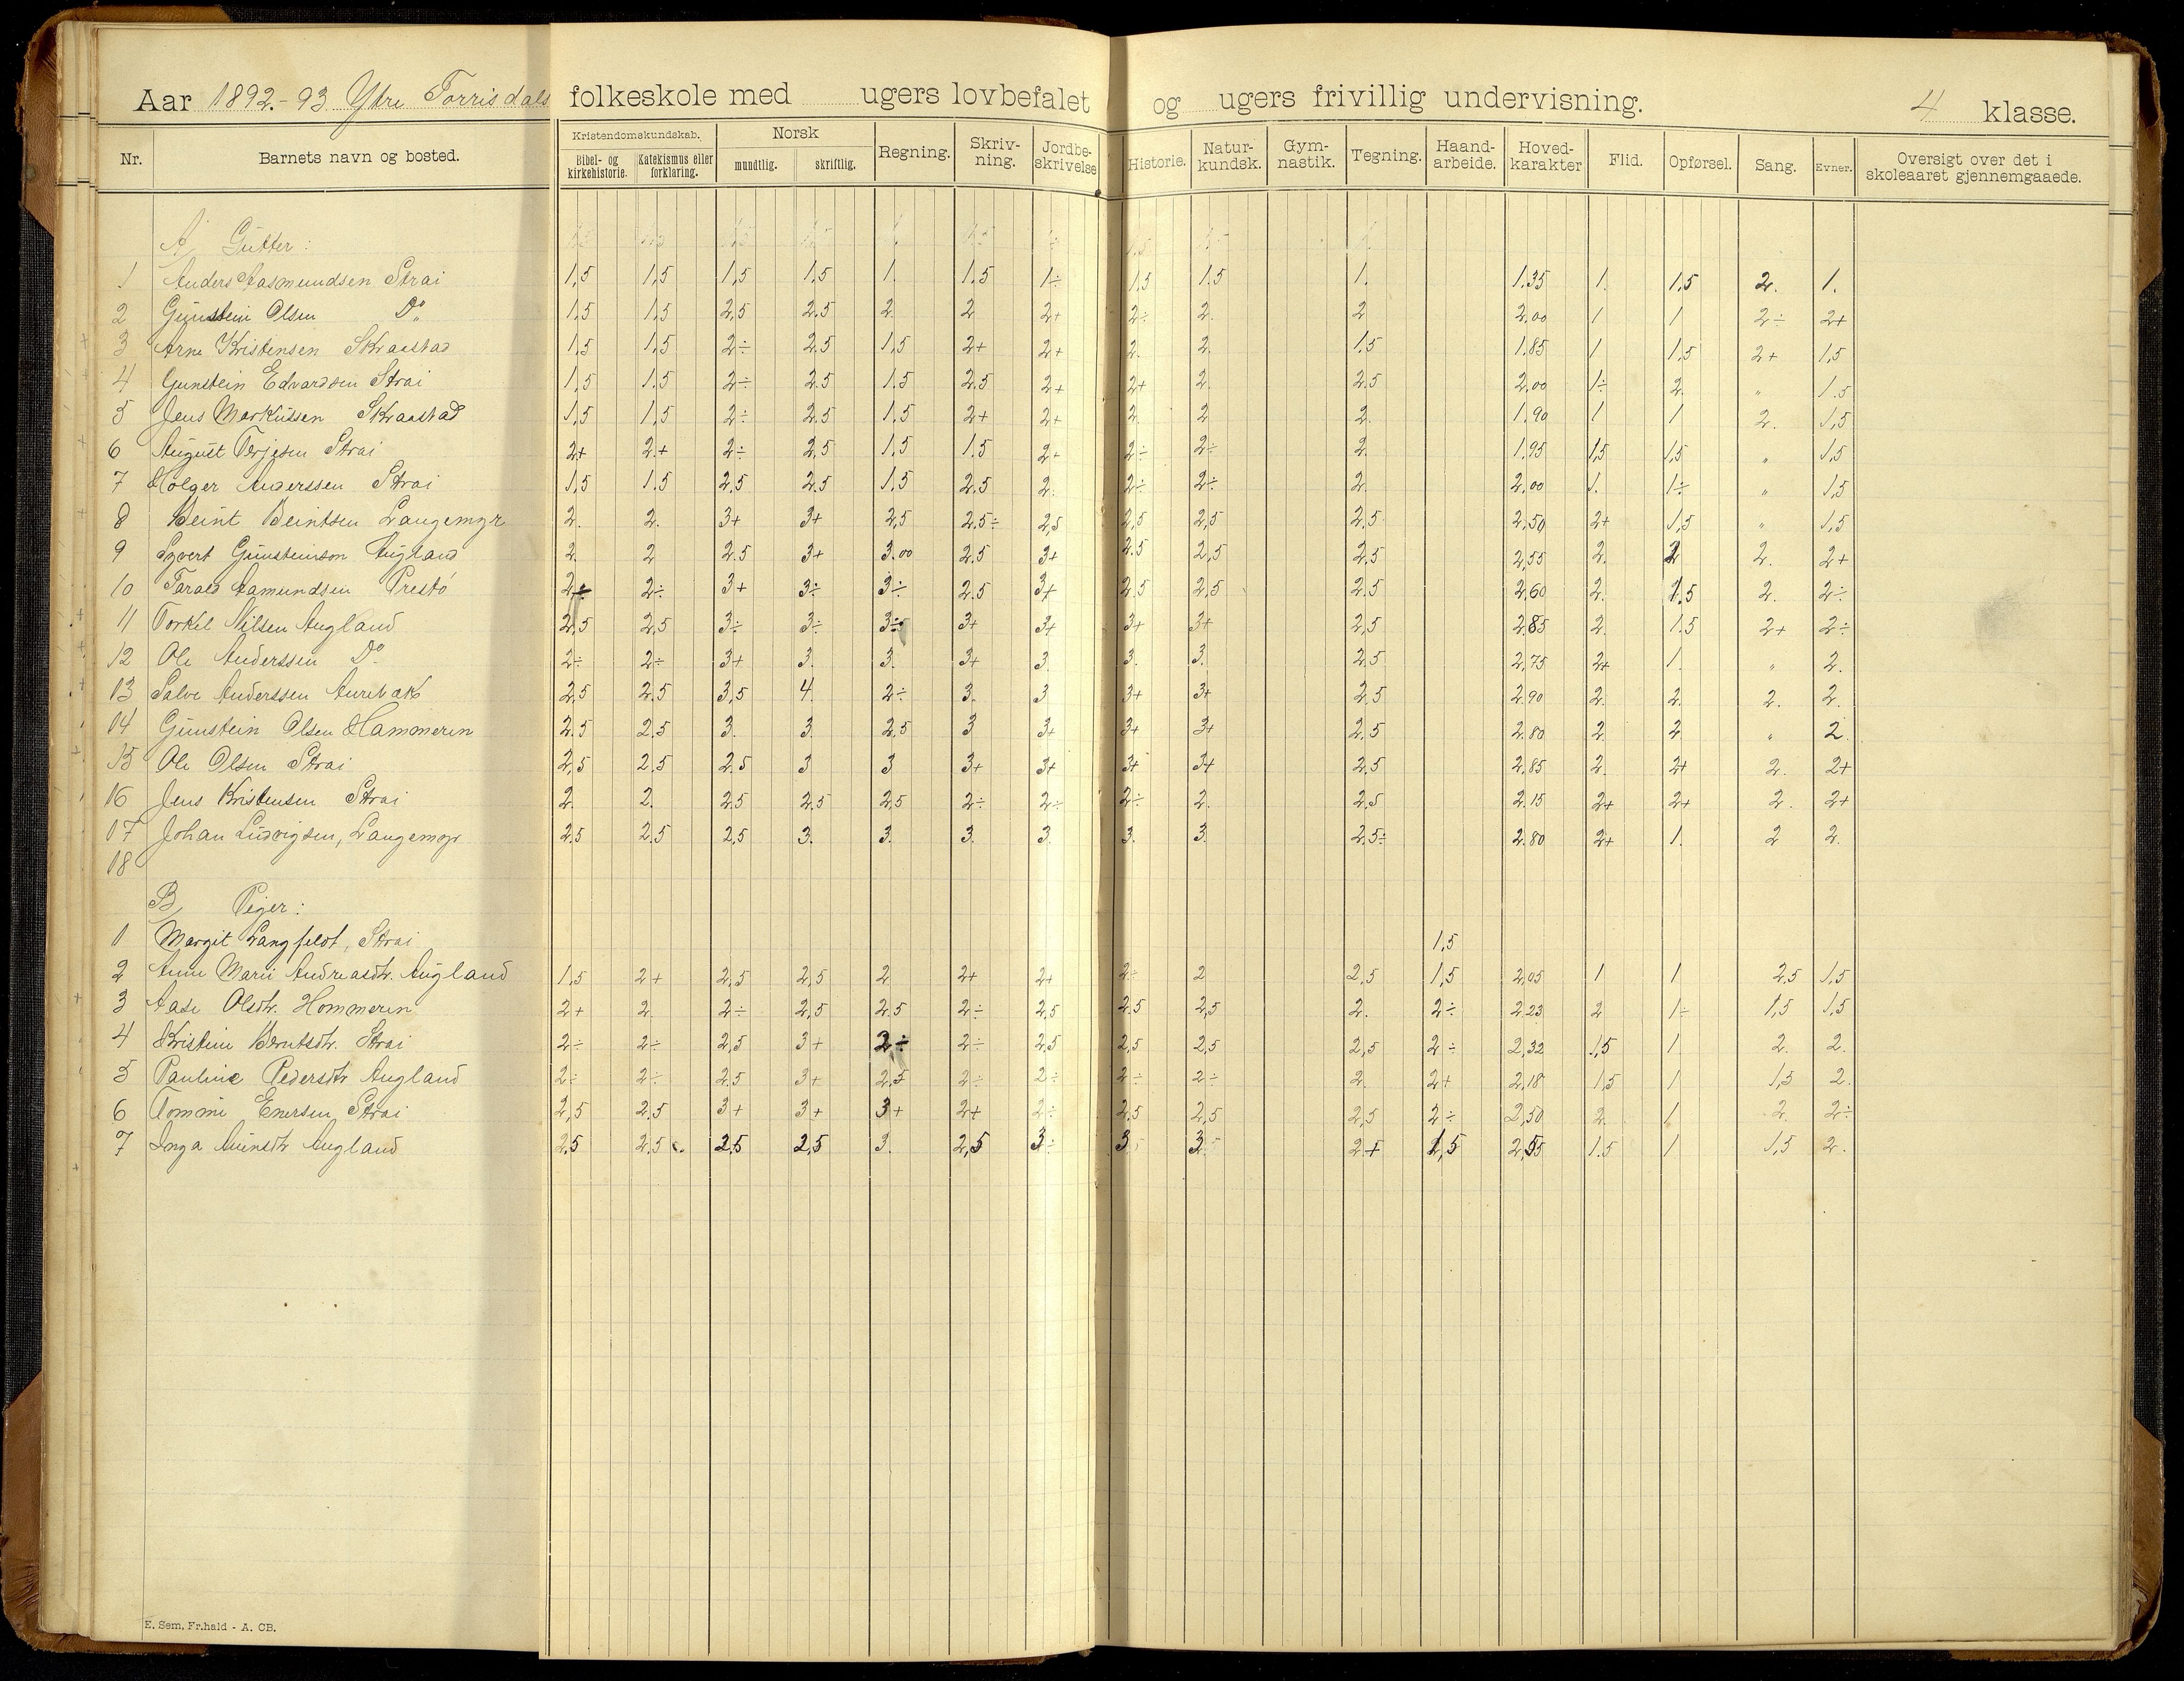 Aar 1892.-93 Ytre Torrisdals folkeskole med ugers lovbefalet og ugers frivillig undervisning. 4 klasse.
Nr. Barnets navn og bosted. Kristendomskundskab. Bibel- og kirkehistorie. Katekismus eller forklaring. Norsk mundtlig. skriftlig. Regning. Skriv-ning. Jordbe-skrivelse Historie. Natur-kundsk. Gym-nastik. Tegning. Haand-arbeide. Hoved-karakter Flid. Opførsel. Sang. Evner. Oversigt over det i skoleaaret gjennemgaaede.
A, Gutter:
1 Anders Aasmundsen Strai 1,5 1,5 1,5 1,5 1. 1,5 1÷ 1,5 1.5 1. 1.35 1. 1,5 2. 1.
2 Gunstein Olsen Do 1,5 1,5 2,5 2,5 2. 2 2+ 2÷ 2. 2 2,00 1 1 2÷ 2+
3 Arne Kristensen Skraastad 1,5 1,5 2÷ 2.5 1,5 2+ 2+ 2. 2. 1.5 1.85 1 1,5 2+ 1,5
4 Gunstein Edvardsen Strai 1,5 1.5 2÷ 2.5 1.5 2.5 2+ 2+ 2. 2.5 2,00 1÷ 2. " 1.5
5 Jens Markussen Skraastad 1,5 1,5 2÷ 2.5 1,5 2+ 2+ 2. 2 2. 1.90 1 1 2. 1,5
6 August Terjesen Strai 2+ 2+ 2÷ 2,5 1.5 1.5 2+ 2÷ 2÷ 2. 1.95 1,5 1,5 " 1,5
7 Holger Anderssen Strai 1,5 1.5 2,5 2.5 1,5 2,5 2. 2÷ 2÷ 2. 2.00 1. 1÷ " 1,5
8 Beint Beintsen Langemyr 2. 2. 3+ 3+ 2,5 2.5÷ 2,5 2,5 2,5 2,5 2,50 2+ 1,5 " 1,5
9 Syvert Gunsteinson Augland 2. 2 2.5 3+ 3.00 2.5 3+ 2.5 2,5 2,5 2,55 2. 2 2. 2+
10 Tarald Aamundsen Prestö 2÷ 2÷ 3+ 3÷ 3÷ 2.5 3+ 2.5 2,5 2.5 2,60 2. 1.5 2. 2÷
11 Torkel Nilsen Augland 2,5 2,5 3÷ 3÷ 3÷ 3+ 3+ 3+ 3+ 2,5 2.85 2. 1.5 2+ 2÷
12 Ole Anderssen Do 2÷ 2÷ 3+ 3. 3. 3+ 3. 3. 3. 2.5 2,75 2+ 1. " 2.
13 Salve Anderssen Aurebæk 2,5 2.5 3,5 4. 2÷ 3. 3 3+ 3+ 2.5 2.90 2. 2. 2. 2.
14 Gunstein Olsen Hammeren 2.5 2,5 3. 3. 2.5 3 3+ 3+ 3+ 2,5 2.80 2. 2. " 2.
15 Ole Olsen Strai 2,5 2.5 2.5 3 3 3+ 3+ 3+ 3+ 2.5 2,85 2. 2+ 2. 2+
16 Jens Kristensen Strai 2. 2. 2.5 2,5 2.5 2÷ 2÷ 2÷ 2. 2.5 2.15 2+ 2+ 2. 2+
17 Johan Ludvigsen, Langemyr 2.5 2.5 2,5 3. 3. 3. 3. 3. 3. 2.5÷ 2.80 2+ 1. 2 2.
18
B, Piger:
1 Margit Langfeldt, Strai 1,5
2 Anne Marie Andreasdtr. Augland 1,5 2+ 2,5 2,5 2 2+ 2+ 2÷ 2 2,5 1,5 2,05 1 1 2.5 1,5
3 Aase Olsdtr. Hommeren 2+ 2 2÷ 2,5 2.5 2÷ 2,5 2.5 2,5 2. 2÷ 2.23 2 1÷ 1,5 1,5
4 Kristine Berntsdtr. Strai 2÷ 2÷ 2,5 3+ 2÷ 2÷ 2.5 2,5 2,5 2,5 2÷ 2,32 1,5 1 2. 2.
5 Pauline Pedersdtr Augland 2÷ 2÷ 2.5 3+ 2,5 2÷ 2÷ 2÷ 2÷ 2. 2+ 2,18 1,5 1 1,5 2.
6 Tommine Enersen, Strai 2,5 2.5 3+ 3+ 3+ 2+ 2÷ 2.5 2,5 2,5 2÷ 2,50 2. 1 2. 2÷
7 Inga Augland 2.5 2.5 2,5 2,5 3. 2,5 3÷ 3 3 2+ 1,5 2,55 1.5 1 1,5 2.
E. Sem, Fr.hald - A. CB.